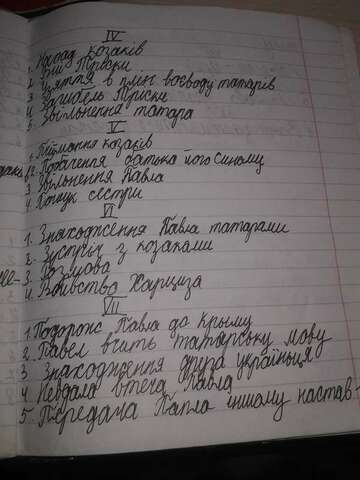 IV
1. Напад козаків
2. Дій Триски
3. Узяття в плінг воєводу татарів
4. Загибель Триски
5. Звільнення татара
V
1. Піймання козаків
2. Пробачення батька його синому
3. Звільнення Павла
4. Пошук сестри
VI
1. Знаходження Павла татарами
2. Зустріч з козаками
3. Розмова
4. Вбивство Харциза
VII
1. Подорож Павла до Крыму
2. Павел вчить татарську мову
3. Знаходження друга українця
4. Невдала втеча Павла
5. Передача Павла іншому настав-